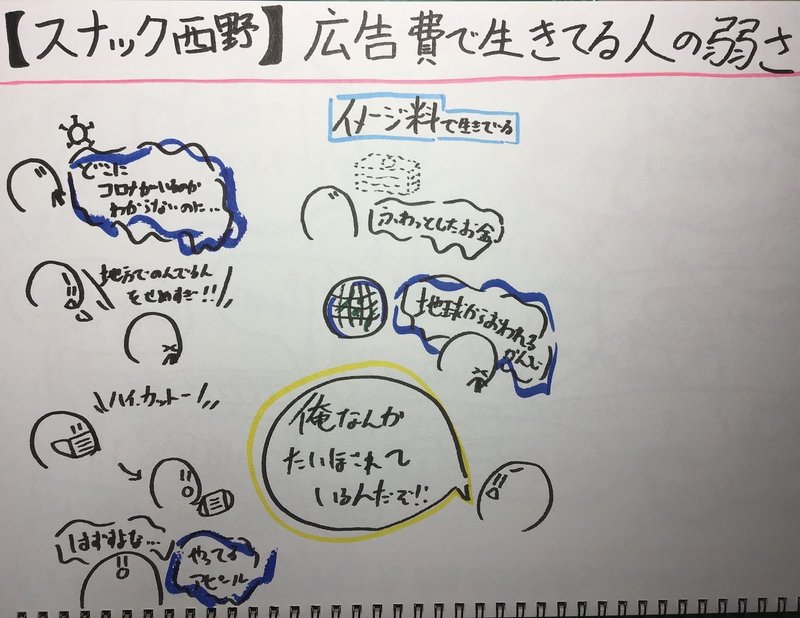 【スナック西野】広告費で生きてる人の弱さ
どこに
コロナがいるのか
わからないのに…
地方でのんでるん
をせめすぎ!!
ハイ、カットー!
はずすよな…
やってる
アピール
イメージ料で生きている
ふわっとしたお金
地球からおわれる
かんじ
俺なんか
たいほされて
いるんだぞ!!